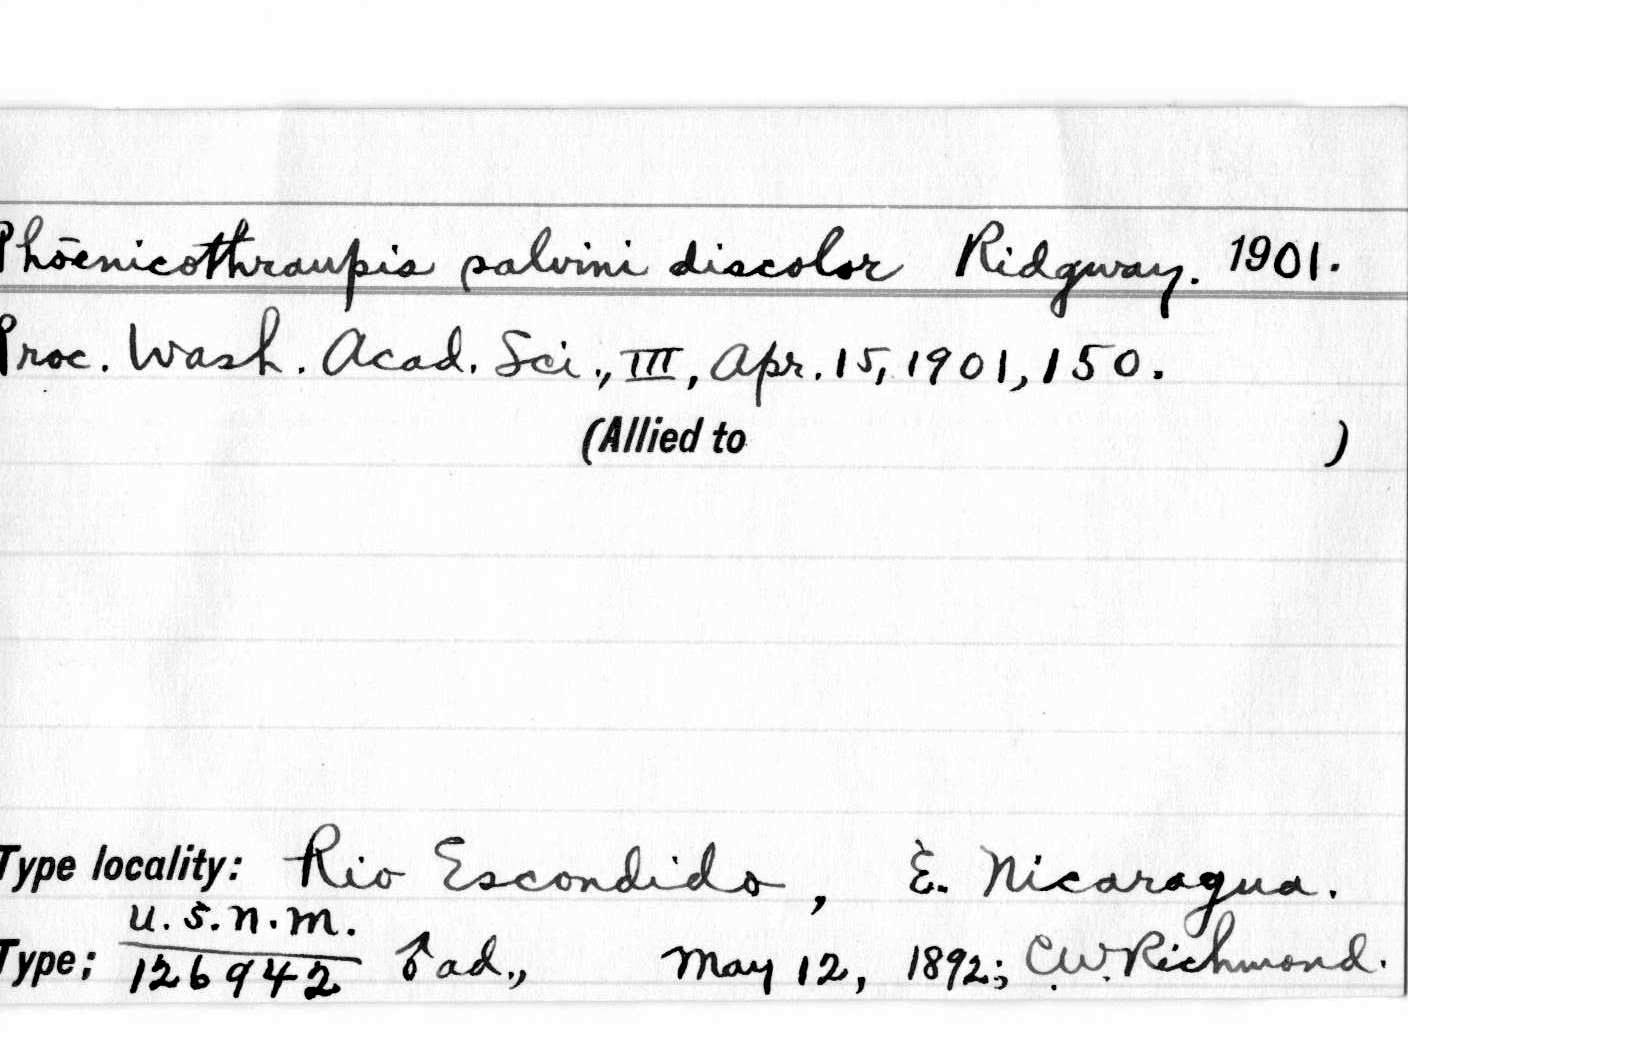 Phoenicothraupis salvini discolor Ridgway. 1901.
Proc. Wash. Acad. Sci., III, Apr. 15, 1901, 150.
(Allied to )
Type locality: Rio Escondido, E. Nicaragua.
U.S.N.M.
Type; 126942 ♂ ad., May 12, 1892; C.W. Richmond.